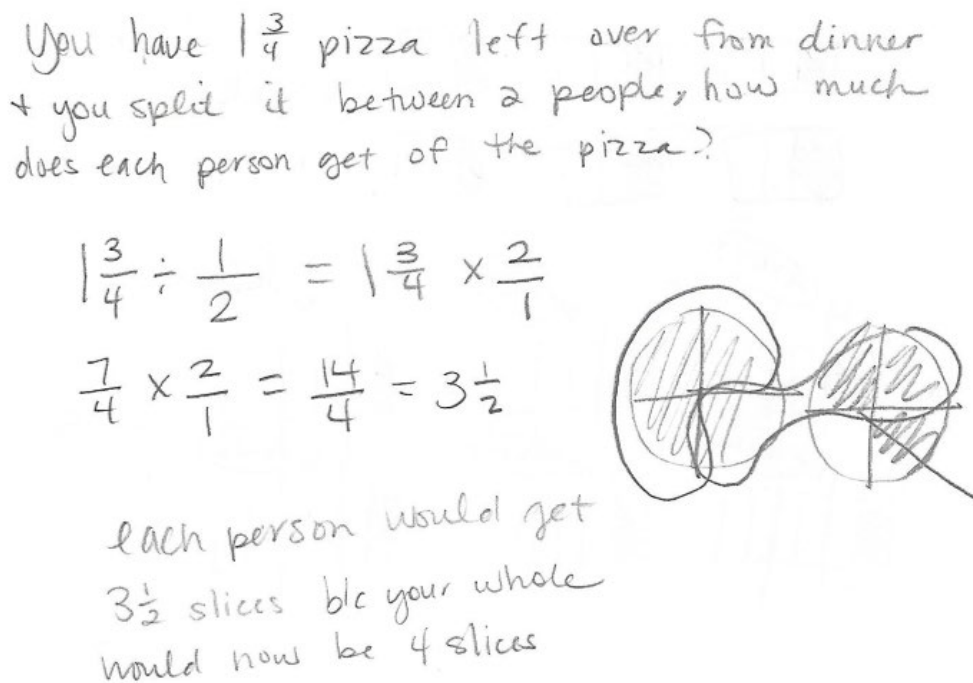 You have 1 3/4 pizza left over from dinner
+ you split it between 2 people, how much
does each person get of the pizza?
1 3/4 ÷ 1/2 = 1 3/4 × 2/1
7/4 × 2/1 = 14/4 = 3 1/2
each person would get
3 1/2 slices b/c your whole
would now be 4 slices